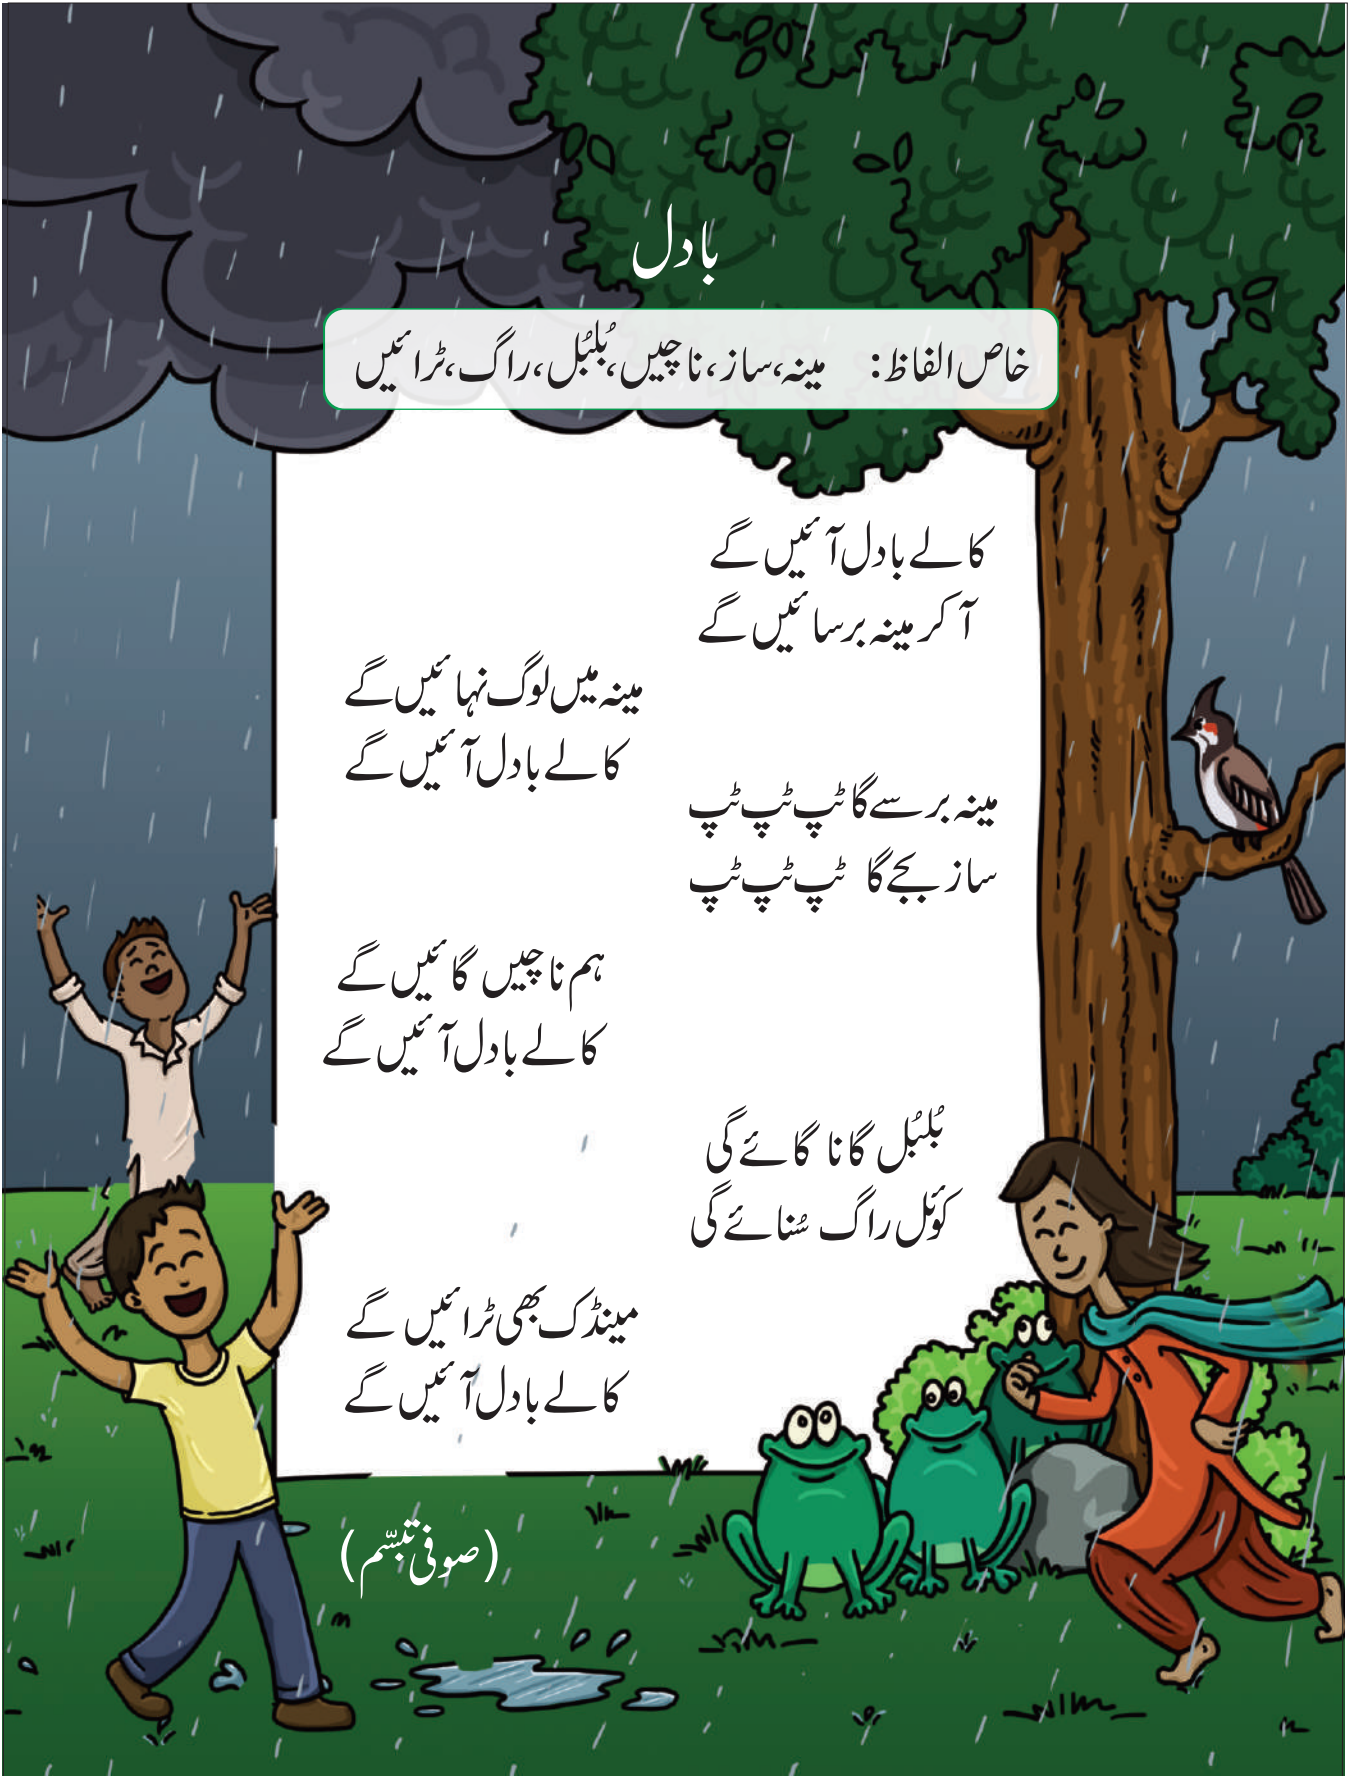 بادل
خاص الفاظ: مینہ، ساز، ناچیں، بُلبُل، راگ، ٹرائیں
کالے بادل آئیں گے
آ کر مینہ برسائیں گے
مینہ میں لوگ نہائیں گے
کالے بادل آئیں گے
مینہ برسے گا ٹپ ٹپ ٹپ
ساز بجے گا ٹپ ٹپ ٹپ
ہم ناچیں گائیں گے
کالے بادل آئیں گے
بُلبُل گانا گائے گی
کوئل راگ سُنائے گی
مینڈک بھی ٹرائیں گے
کالے بادل آئیں گے
(صوفی تبسّم)